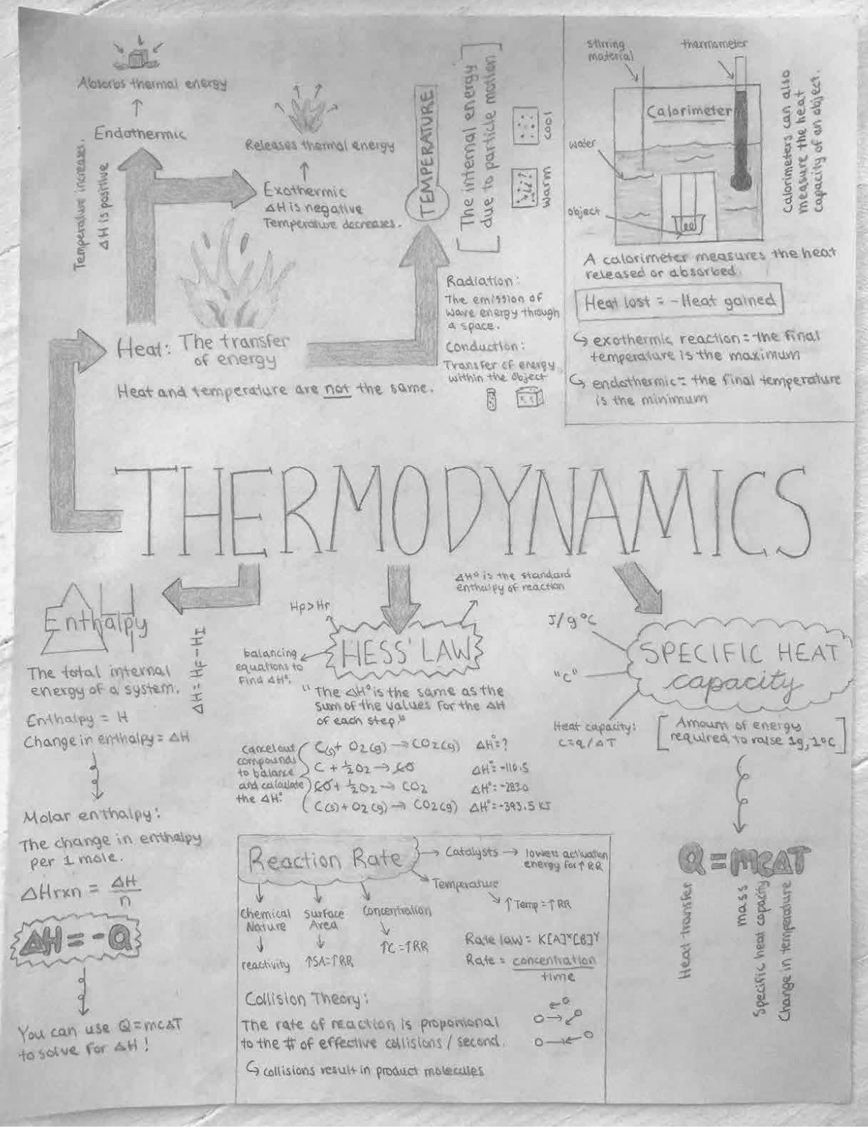 Absorbs thermal energy
Endothermic
Temperature increases.
ΔH is positive
Releases thermal energy
Exothermic
ΔH is negative
Temperature decreases.
Heat: The transfer
of energy
Heat and temperature are not the same.
TEMPERATURE
[The internal energy
due to particle motion]
cool
warm
Radiation:
The emission of
wave energy through
a space.
Conduction:
Transfer of energy
within the object
stirring
material
thermometer
Calorimeter
water
object
Calorimeters can also
measure the heat
capacity of an object.
A calorimeter measures the heat
released or absorbed.
Heat lost = -Heat gained
↳ exothermic reaction = the final
temperature is the maximum
↳ endothermic = the final temperature
is the minimum
THERMODYNAMICS
Enthalpy
ΔH = HF - HI
The total internal
energy of a system.
Enthalpy = H
Change in enthalpy = ΔH
Molar enthalpy:
The change in enthalpy
per 1 mole.
ΔHrxn = ΔH
n
ΔH = -Q
You can use Q=mcΔT
to solve for ΔH!
Hp>Hr
ΔH° is the standard
enthalpy of reaction
HESS' LAW
balancing
equations to
find ΔH°.
"The ΔH° is the same as the
sum of the values for the ΔH
of each step."
cancel out
compounds
to balance
and calculate
the ΔH°
C(s)+ O2(g) → CO2(g) ΔH°= ?
C + ½O2 → CO ΔH°= -110.5
CO + ½O2 → CO2 ΔH°= -283.0
C(s) + O2(g) → CO2(g) ΔH°= -393.5 KJ
J/g°C
"C"
SPECIFIC HEAT
capacity
Heat capacity:
C=q/ΔT
[Amount of energy
required to raise 1g, 1°C]
Q = mcΔT
Heat transfer
mass
Specific heat capacity
Change in temperature
Reaction Rate → Catalysts → lowers activation
energy for ↑RR
Temperature
↑Temp = ↑RR
Chemical
Nature
reactivity
Surface
Area
↑SA=↑RR
Concentration
↑C=↑RR
Rate law = K[A]ˣ[B]ʸ
Rate = concentration
time
Collision Theory:
The rate of reaction is proportional
to the # of effective collisions / second.
↳ collisions result in product molecules